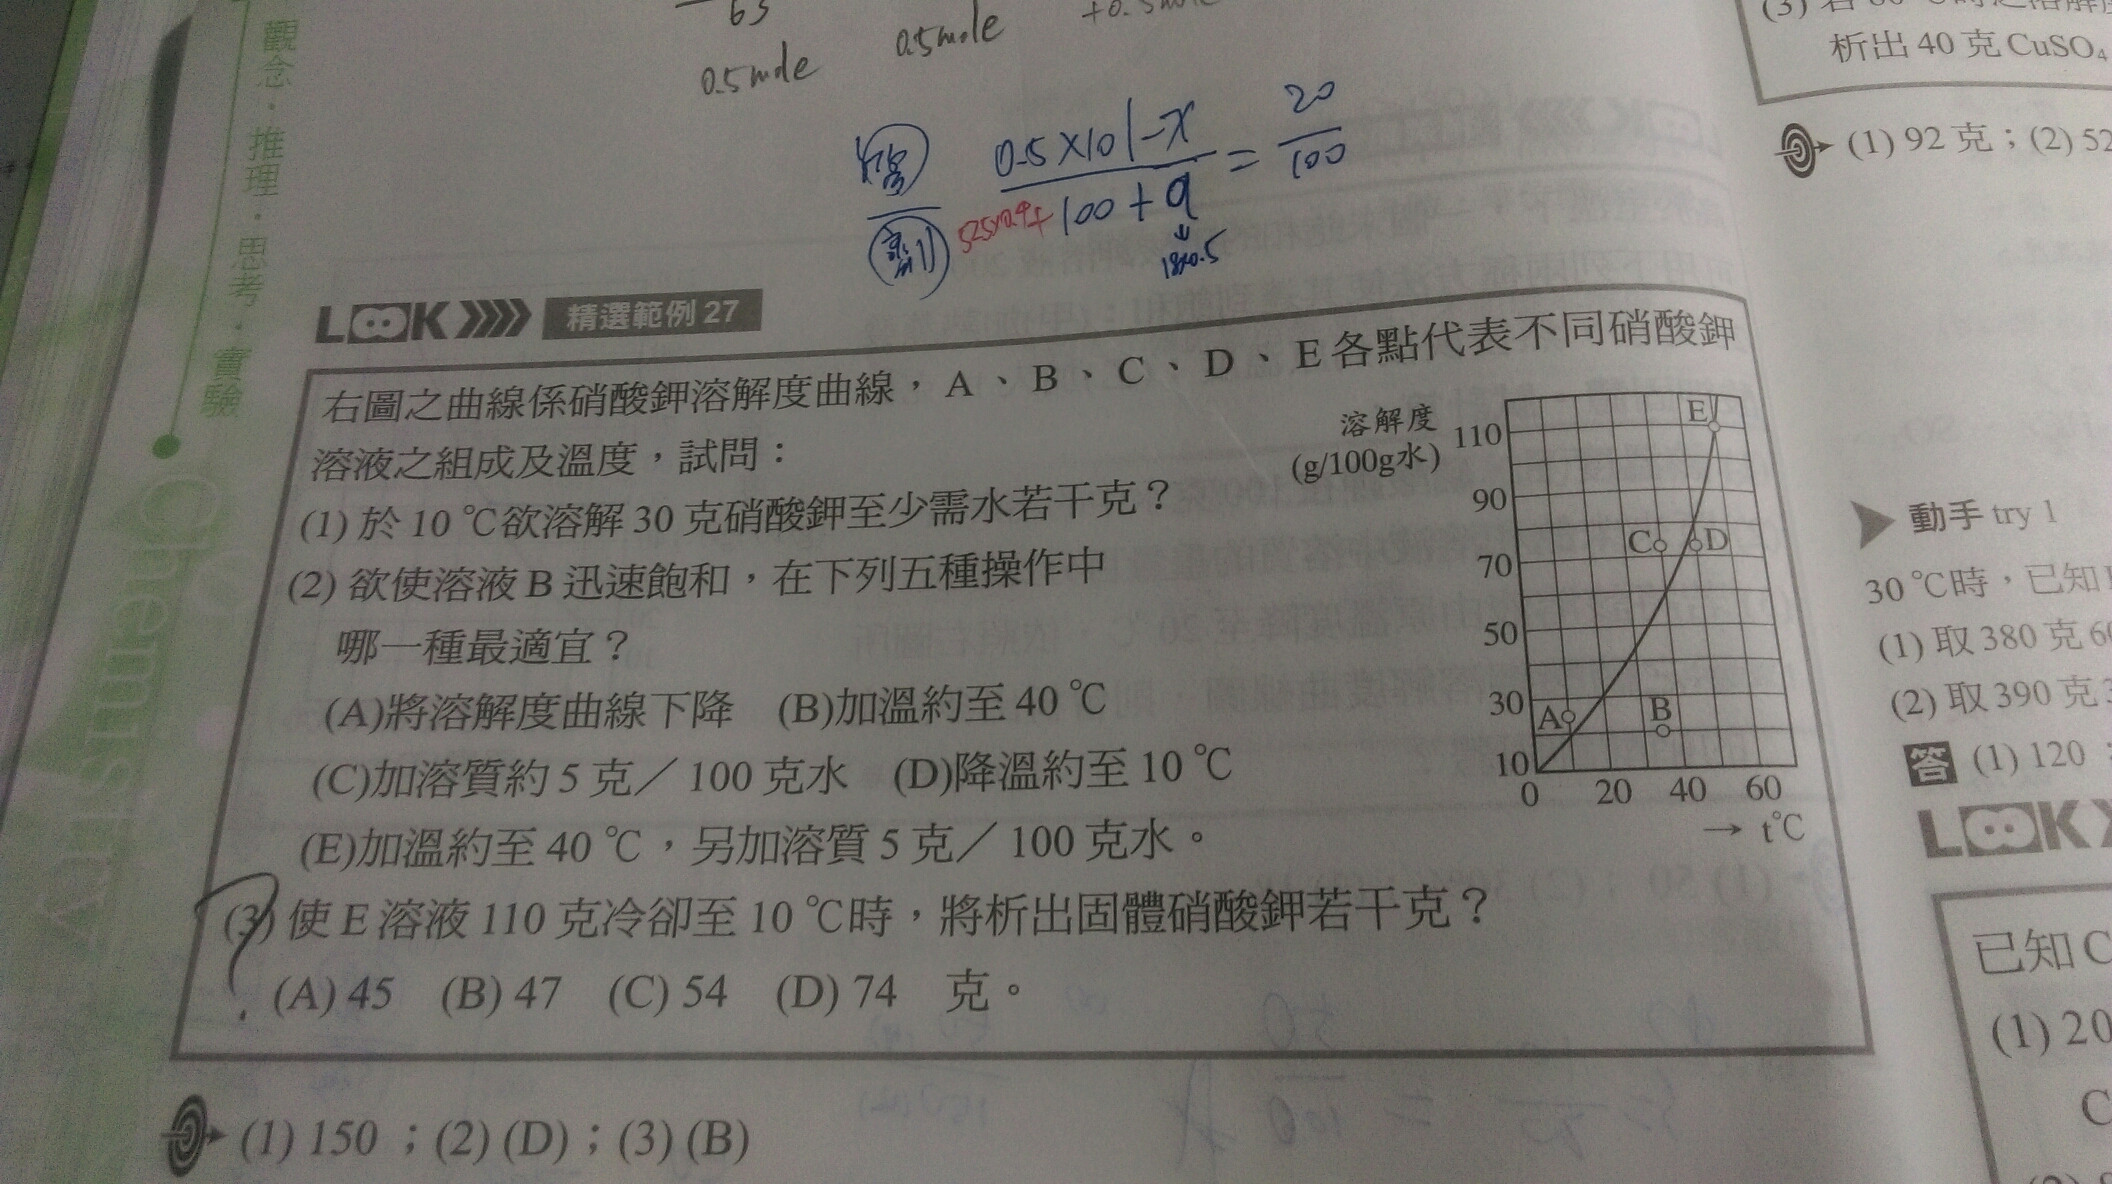 65
0.5mole
0.5mole
+0.5mole
溶 0.5×101-x = 20
劑 525×0.9+ 100+9 100
18×0.5
觀念·推理·思考·實驗
Chemistry
LOOK 精選範例 27
右圖之曲線係硝酸鉀溶解度曲線，A、B、C、D、E各點代表不同硝酸鉀
溶液之組成及溫度，試問：
(1) 於 10 ℃欲溶解 30 克硝酸鉀至少需水若干克？
(2) 欲使溶液 B 迅速飽和，在下列五種操作中
哪一種最適宜？
(A)將溶解度曲線下降 (B)加溫約至 40 ℃
(C)加溶質約 5 克／100 克水 (D)降溫約至 10 ℃
(E)加溫約至 40 ℃，另加溶質 5 克／100 克水。
(3) 使 E 溶液 110 克冷卻至 10 ℃時，將析出固體硝酸鉀若干克？
(A) 45 (B) 47 (C) 54 (D) 74 克。
溶解度
(g/100g水)
110
90
70
50
30
10
0 20 40 60
→ t℃
E
C
D
A
B
?
(1) 150 ；(2) (D)；(3) (B)
析出 40 克 CuSO₄
(1) 92 克；(2) 52
動手 try 1
30 ℃時，已知
(1) 取 380 克
(2) 取 390 克
答 (1) 120
LOOK
已知 C
(1) 20
C